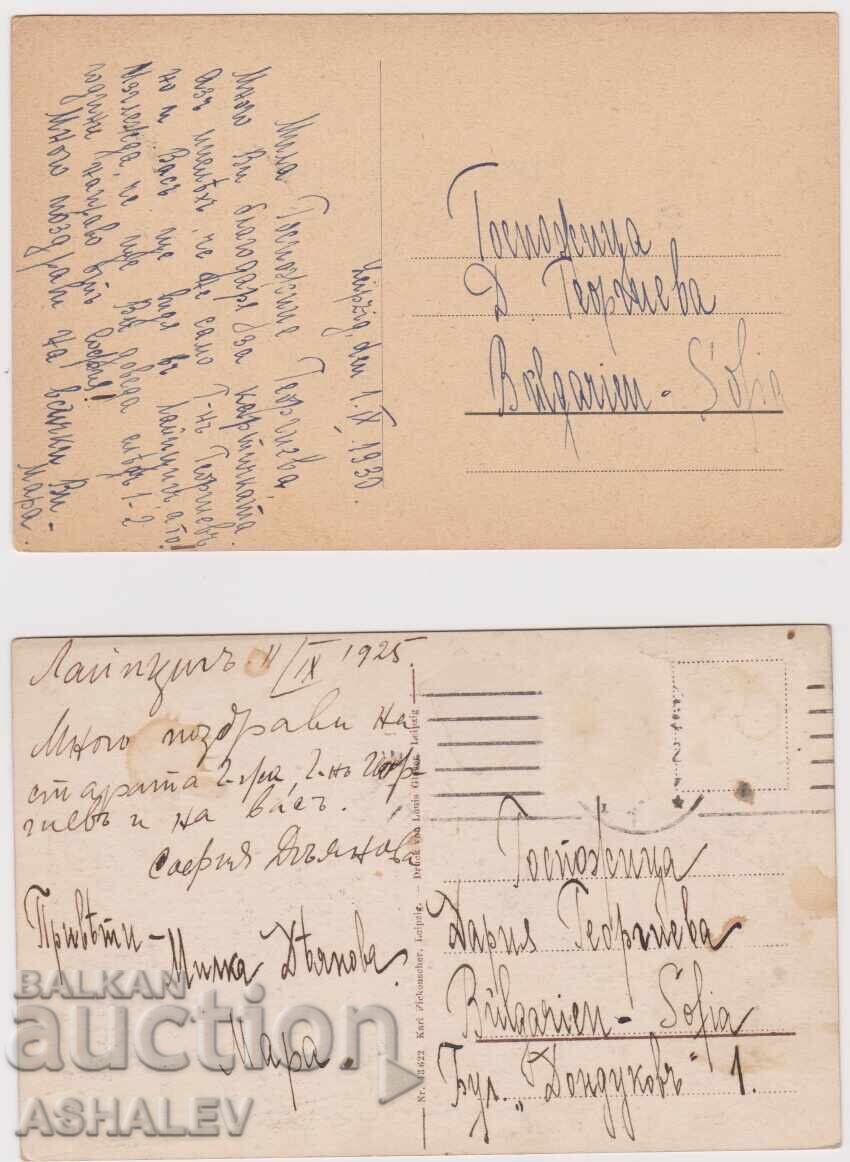 Leipzig, den 1.IX.1930.
Мила Госпожице Георгиева,
Много Ви благодаря за картичката.
Азъ мислѣхъ, че не само Г-нъ Георгиевъ
но и Васъ ще видя въ Лайпцигъ, а то!
Изглежда, че ще Ви доведа слѣдъ 1-2
години направо въ София!
Много поздрави на всички Ви -
Мара -
Госпожица
Д. Георгиева
Bulgarien - Sofia
Лайпцигъ 11/IX 1925.
Много поздрави на
старата г-жа, г-нъ Геор-
гиевъ и на васъ.
София Дѣянова
Привѣти -
Милка Дѣянова
Мара.
Nr. 13622 Karl Zickenscher, Leipzig. — Druck von Louis Leipzig
Госпожица
Дария Георгиева
Bulgarien - Sofia
Бул. „Дондуковъ" 1.
BALKAN
auction
ASHALEV